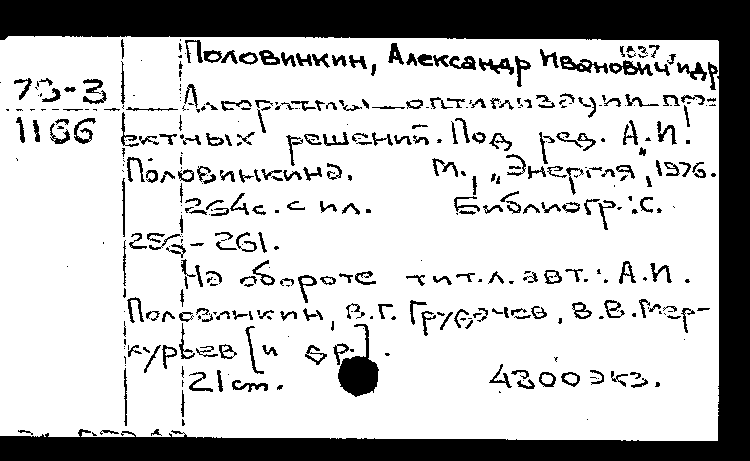 1937
Половинкин, Александр Иванович и др.
78-3
Алгоритмы оптимизации про-
1166
ектных решений. Под ред. А.И.
Половинкина. М., "Энергия", 1976.
264с. с ил. Библиогр.: с.
256-261.
На обороте тит.л. авт.: А.И.
Половинкин, В.Г. Грудачев, В.В. Мер-
курьев [и др.].
21 см. 4300 экз.